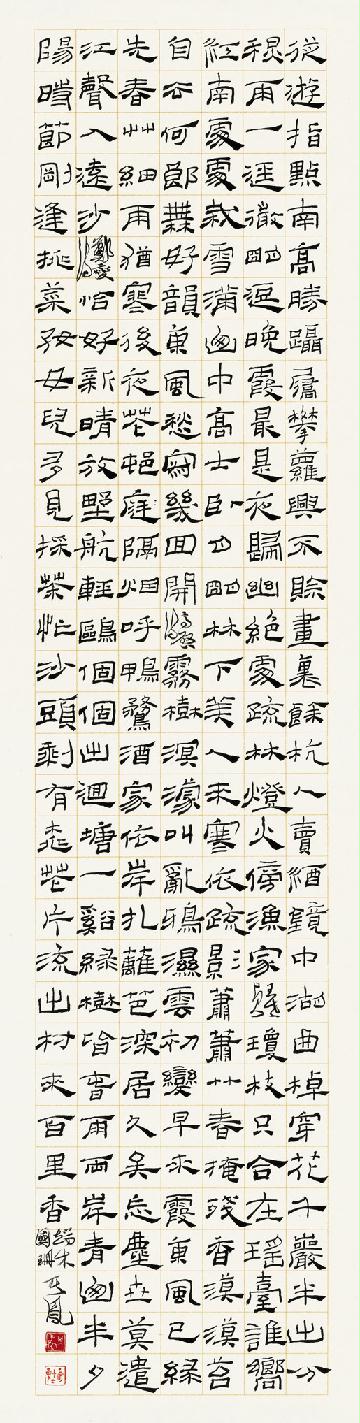 從遊指點南高勝躡屩攀蘿興不賒畫裏餘杭人賣酒鏡中湖曲棹穿花千巖半出分
殘雨一逕微明逗晚霞最是夜歸幽絕處疏林燈火傍漁家瓊枝只合在瑤臺誰嚮
江南處處栽雪滿山中高士臥月明林下美人來寒依疏影蕭蕭竹春掩殘香漠漠苔
自去何郎無好韻東風愁寂幾回開高啟霧樹溟濛叫亂鴉濕雲初變早來霞東風已綠
先春草細雨猶寒後夜花邨庭隔烟呼鴨鶩酒家依岸扎籬笆深居久矣忘塵世莫遣
江聲入遠沙鄭燮恰好新晴放野航輕鷗個個出迴塘一谿綠樹皆春雨兩岸青山半夕
陽時節剛逢挑菜好女兒多見採茶忙沙頭剩有桃花片流出村來百里香端木國瑚